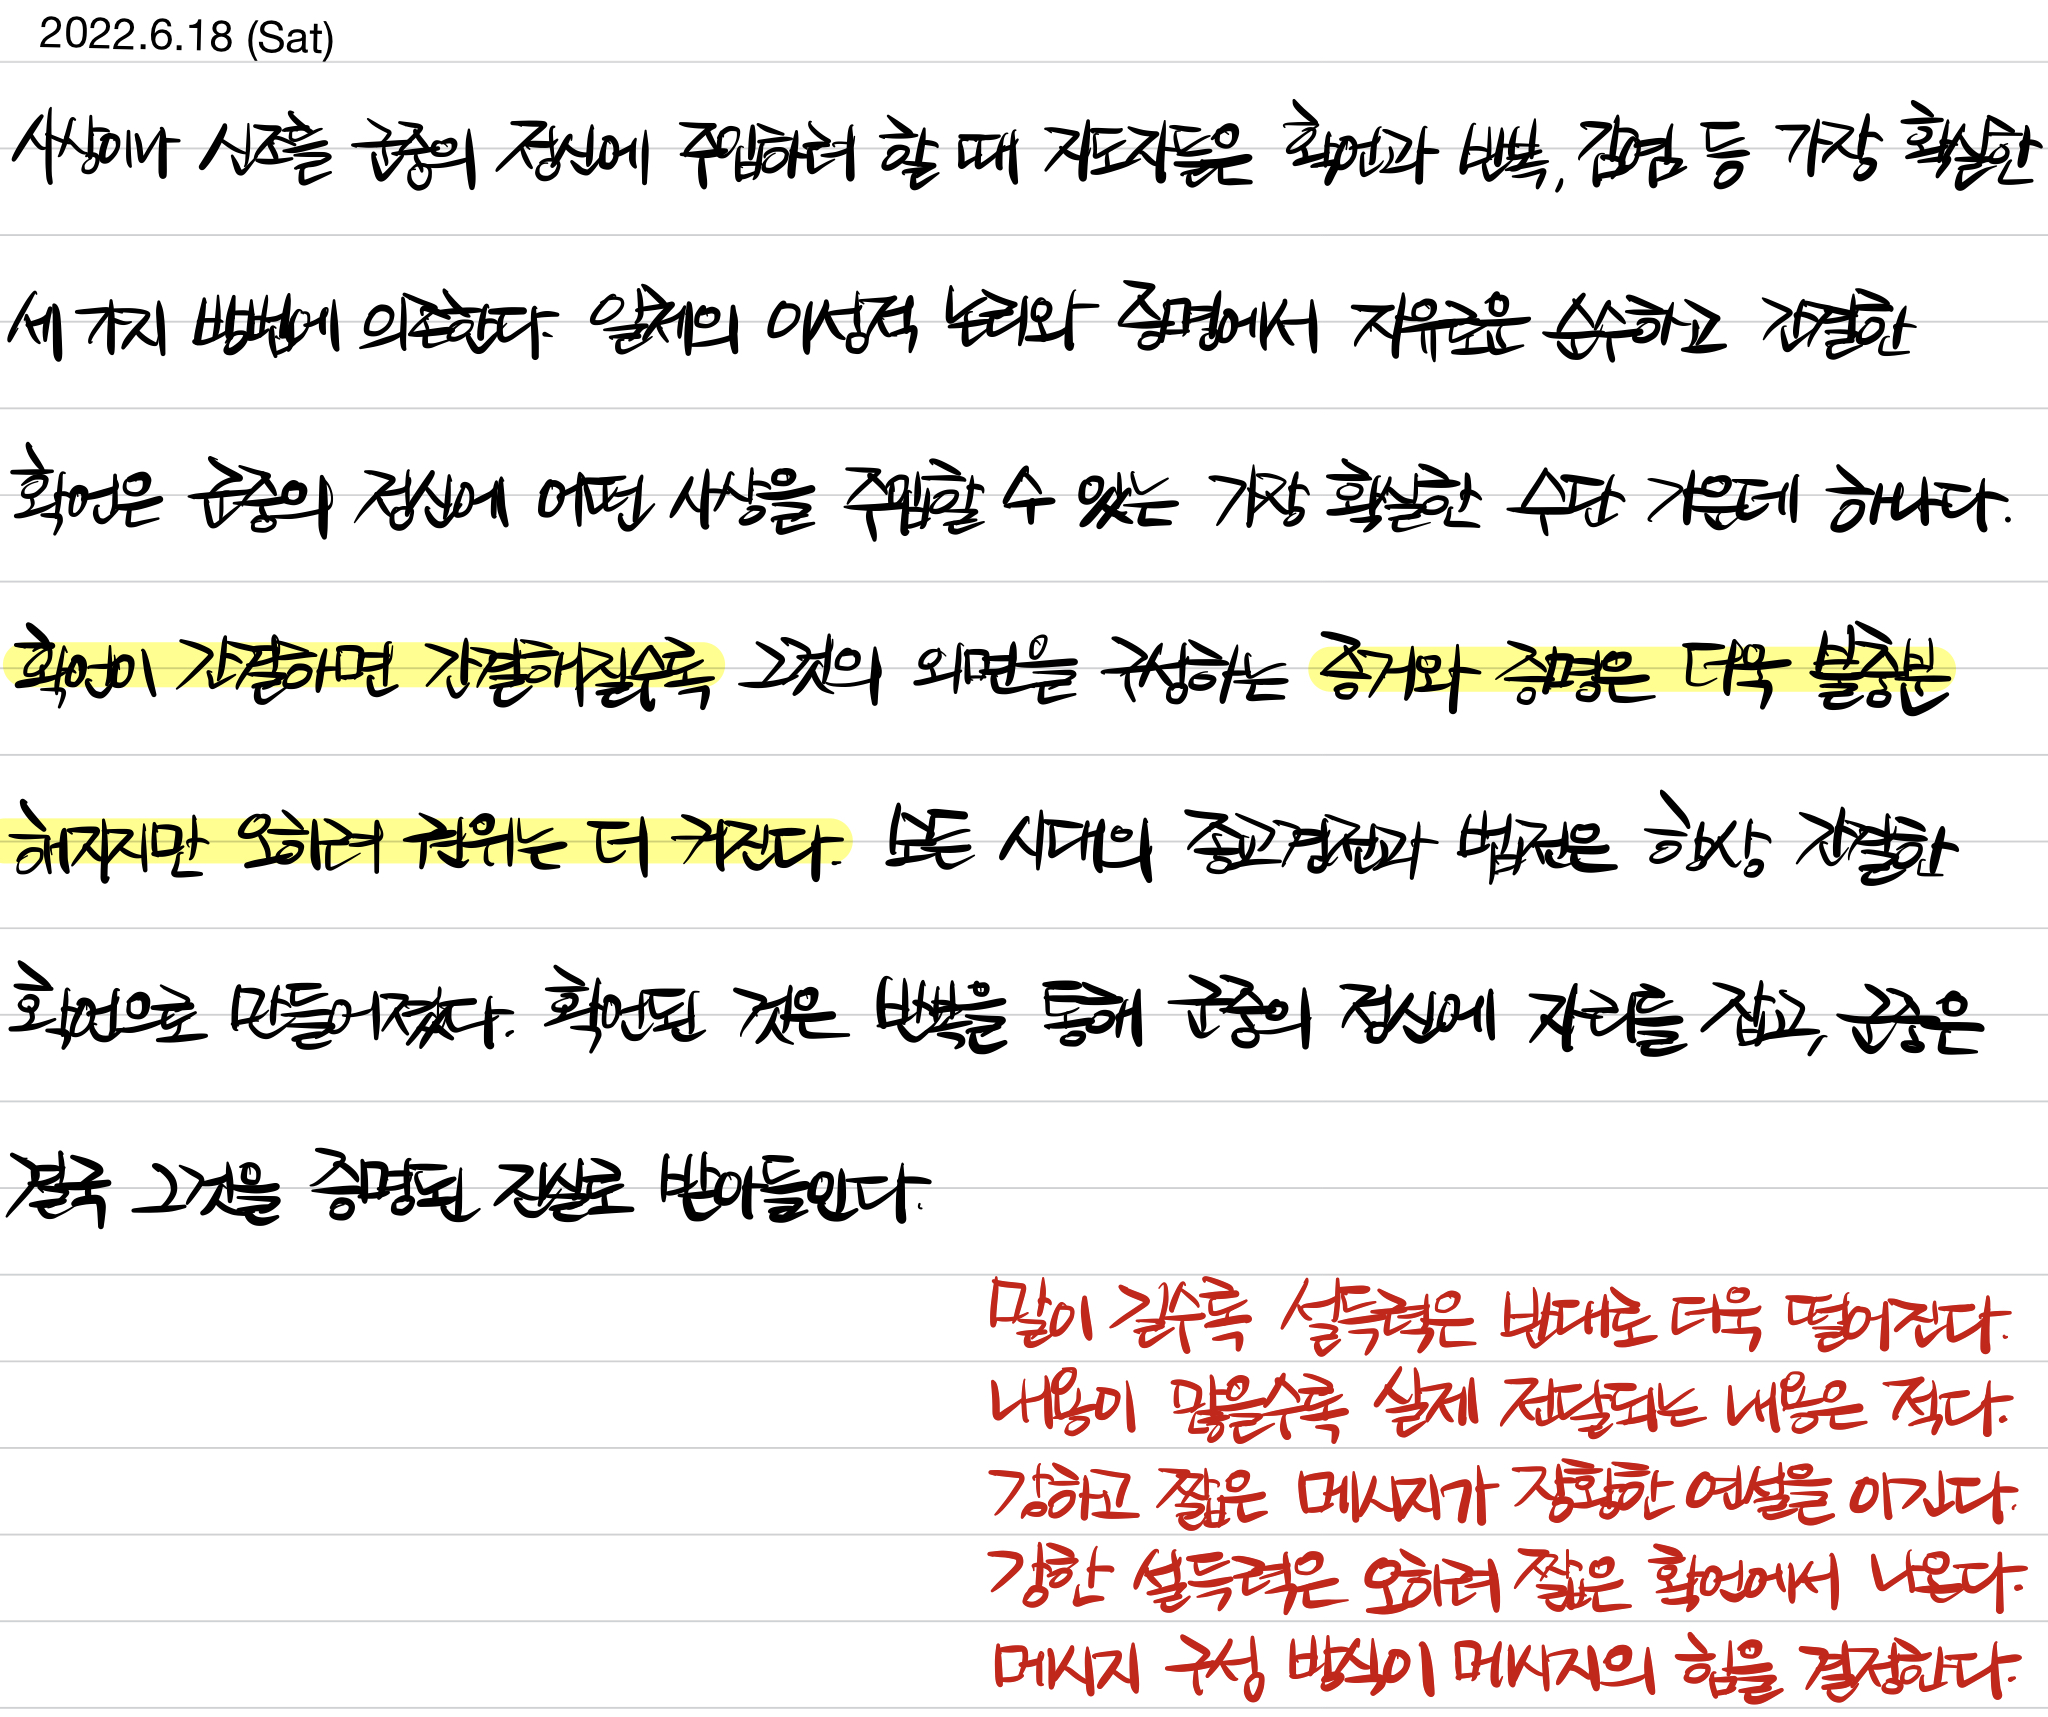 2022.6.18 (Sat)
사상이나 시조를 군중의 정신에 주입하려 할 때 지도자들은 확언과 반복, 감염 등 가장 확실한
세 가지 방법에 의존한다. 일체의 이성적 논리와 증명에서 자유로운 순수하고 간결한
확언은 군중의 정신에 어떤 사상을 주입할 수 있는 가장 확실한 수단 가운데 하나다.
확언이 간결하면 간결해질수록 그것의 외면을 구성하는 증거와 증명은 더욱 불충분
해지지만 오히려 권위는 더 커진다. 모든 시대의 종교경전과 법전은 항상 간결한
확언으로 만들어졌다. 확언된 것은 반복을 통해 군중의 정신에 자리를 잡고, 군중은
결국 그것을 증명된 진실로 받아들인다.
말이 길수록 설득력은 반대로 더욱 떨어진다.
내용이 많을수록 실제 전달되는 내용은 적다.
강하고 짧은 메시지가 장황한 연설을 이긴다.
강한 설득력은 오히려 짧은 확언에서 나온다.
메시지 구성 방식이 메시지의 힘을 결정한다.